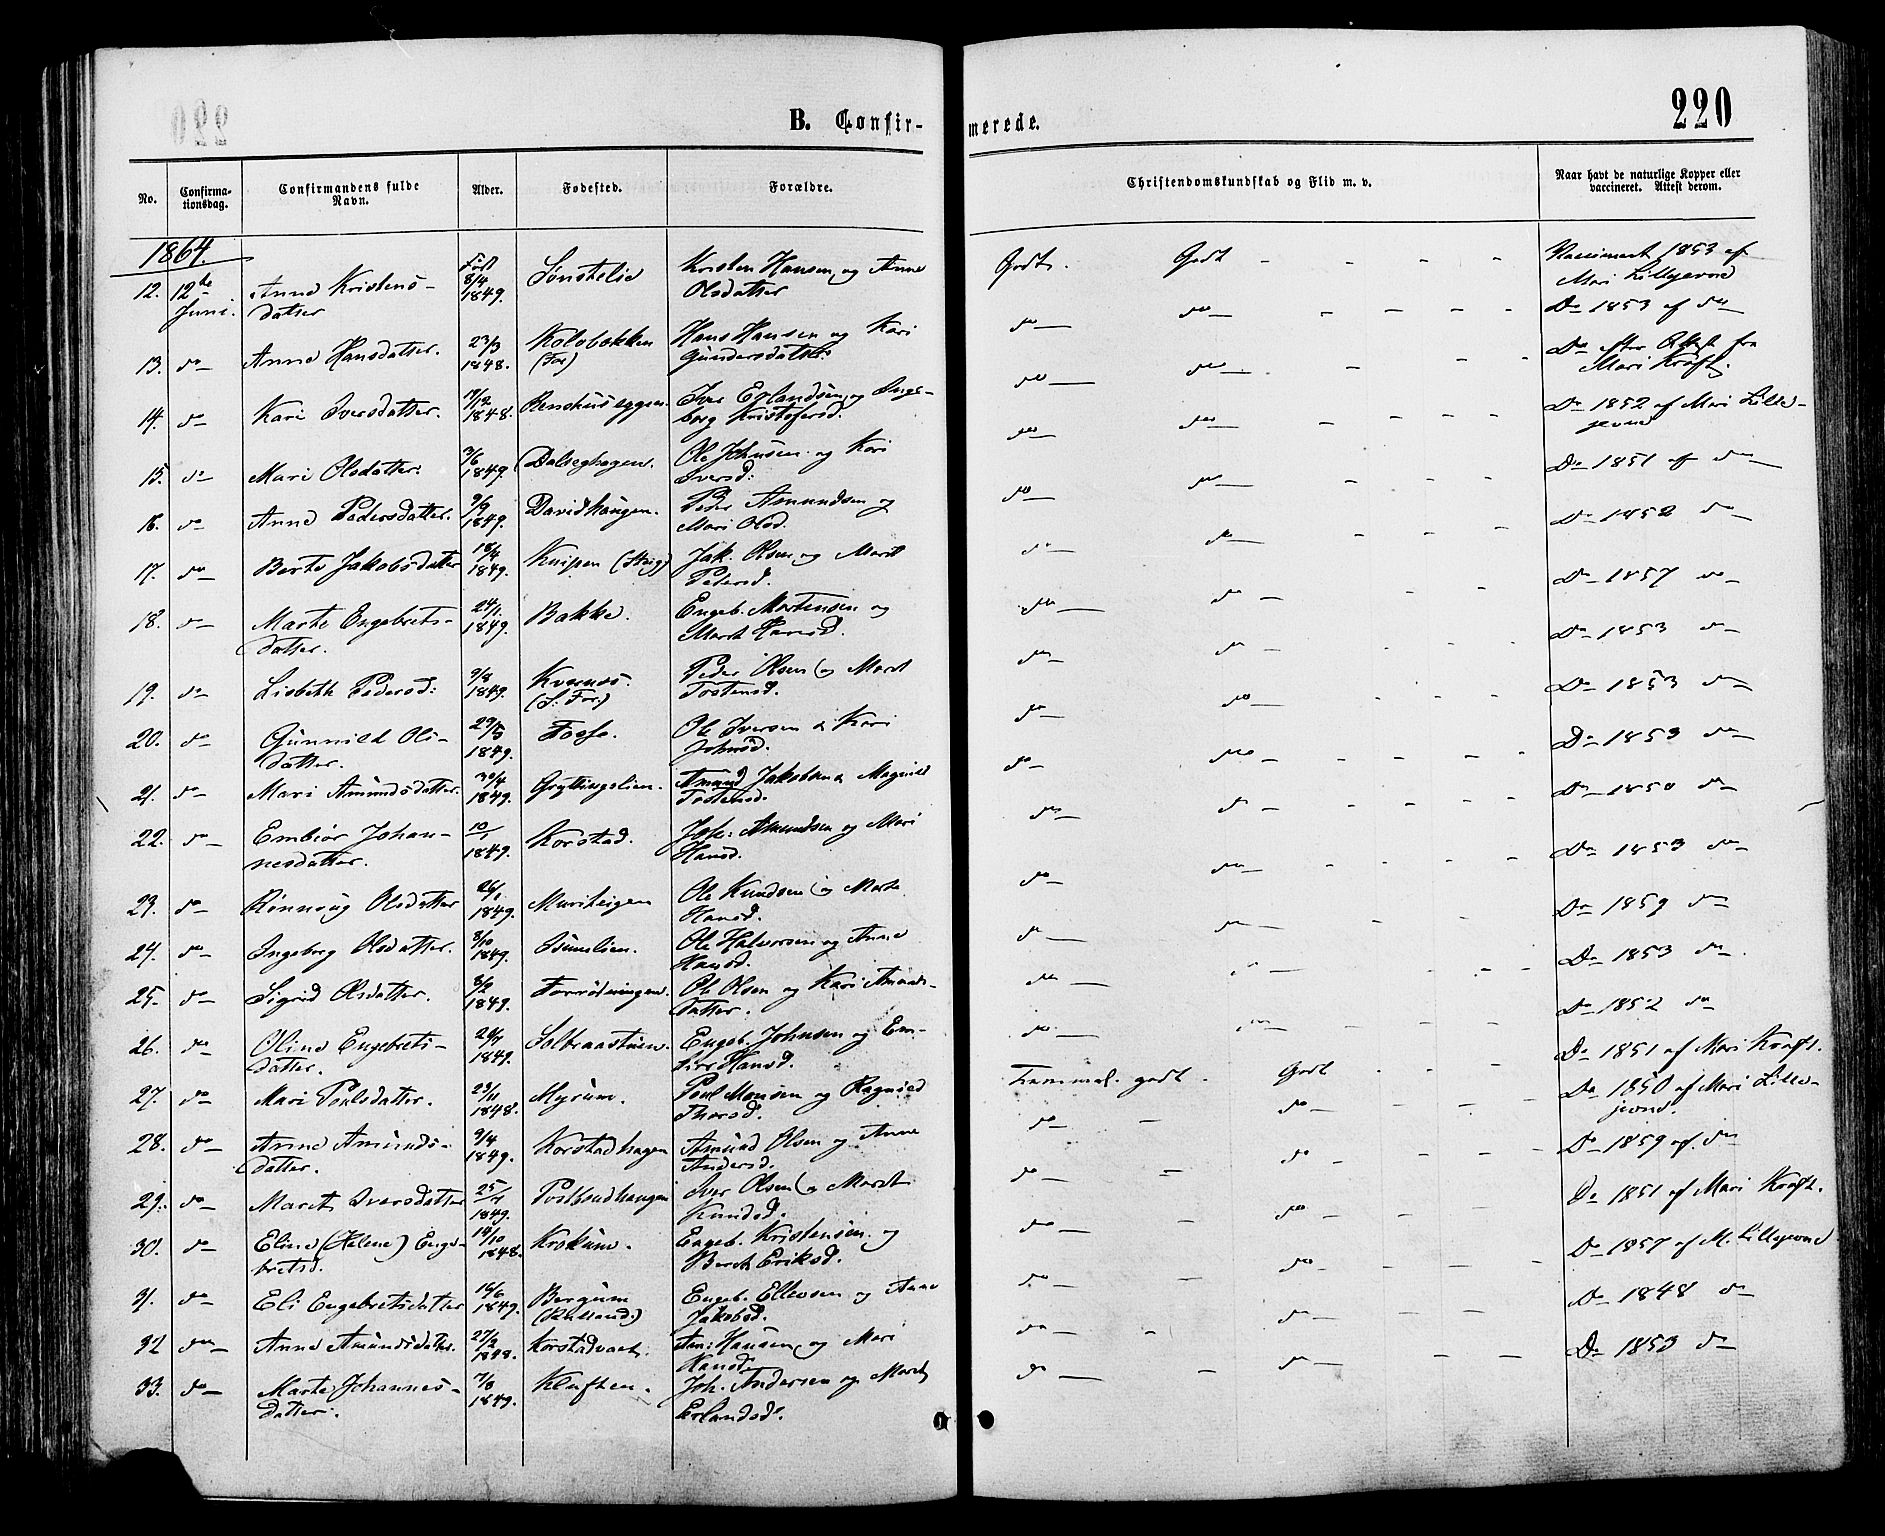 220
B. Confir-
merede.
No.
Confirma-
tionsdag.
Confirmandens fulde
Navn.
Alder.
Fødested.
Forældre.
Christendomskundskab og Flid m. v.
Naar havt de naturlige Kopper eller
vaccineret. Attest derom.
1864.
12. 12te Anne Kristens- Født 8/4 1849. Sønstelie Kristen Hansen og Anne Godt. Godt - - - - Vaccineret 1853 af
Juni. datter Olsdatter Mari Lillejevne
13. do Anne Hansdatter. 23/3 1848. Kolobækken Hans Hansen og Kari do do - - - - Do 1853 af do
(For) Gundersdatter
14. do Kari Iversdatter. 1848. Iver Erlandsen og Inge- do do - - - Do efter Attest fra
borg Kristofersd. Mari Kraft.
15. do Mari Olsdatter. 1849. Dalseghagen. Ole Johnsen og Kari do do - - - - Do 1852 af Mari Lille-
Iversd. jevne
16. do Anne Pedersdatter. 9/9 1849. Davidhaugen. Peder Amundsen og do do - - - - Do 1851 af do
Mari Olsd.
17. do Berte Jakobsdatter 18/4 1849. Knipen Jak. Olsen og Marit do do - - - Do 1852 do
Pedersd.
18. do Marte Engebrets- 24/1 1849. Bakke. Engeb. Mortensen og do do - - Do 1857 do
datter. Marit Hansd.
19. do Lisbeth Pedersd. 9/8 1849. Kvernes. Peder Olsen og Marit do do - - Do 1853 do
(S. For.) Tostensd.
20. do Gunnild Ols- 1849. Fosse. Ole Iversen & Kari do do - - - Do 1853 do
datter. Johnsd.
21. do Mari Amundsdatter. 30/4 1849. Gryttingslien. Amund Jakobsen & Magnild do do - - - - Do 1853 do
Tostensd.
22. do Embiør Johan- 10/1 1849. Korstad. Joh: Amundsen og Mari do do - - - - Do 1850 do
nesdatter. Hansd.
23. do Rønnoug Olsdatter 26/1 1849. Muriteigen Ole Knudsen og Marte do do - - - - Do 1853 do
Hansd.
24. do Ingeborg Olsdatter. 8/10 1849. Ole Halvorsen og Anne do do - - Do 1859 do
Hansd.
25. do Sigrid Olsdatter. 8/2 1849. Ole Olsen og Kari Amunds- do do - - - Do 1853 do
datter.
26. do Oline Engebrets- 1849. Solbraastuen. Engeb. Johnsen og Em- do do - - - Do 1852 do
datter. Hansd.
27. do Mari Poulsdatter. 23/11 1848. Myrum. Poul Monsen og Ragnild Temmel. godt. Godt - - - Do 1851 af Mari Kraft.
Thorsd.
28. do Anne Amunds- 9/4 1849. Korstadhagen Amund Olsen og Anne do do - - - Do 1850 af Mari Lille-
datter. Andersd. jevne.
29. do Marit Iversdatter 25/4 1849. Iver Olsen og Marit do do - - - - Do 1859 af do
Knudsd.
30. do Eline (Helene) Enge- 14/10 1848. Krokum. Engeb. Kristensen og do do - - Do 1851 af Mari Kraft.
bretsd. Berit Eriksd.
31. do Eli Engebretsdatter 16/6 1849. Bergum Engeb. Ellevsen og Anne do do - - - Do 1857 af M. Lillejevne
Jakobsd.
32 do Anne Amundsdatter. 27/2 1848. Korstadvart. Am: Hansen og Mari do do - - Do 1848 do
Hansd.
33. do Marte Johannes- 7/8 1849. Kluften. Joh. Andersen og Marit do do - - Do 1853 do
datter. Erlandsd.